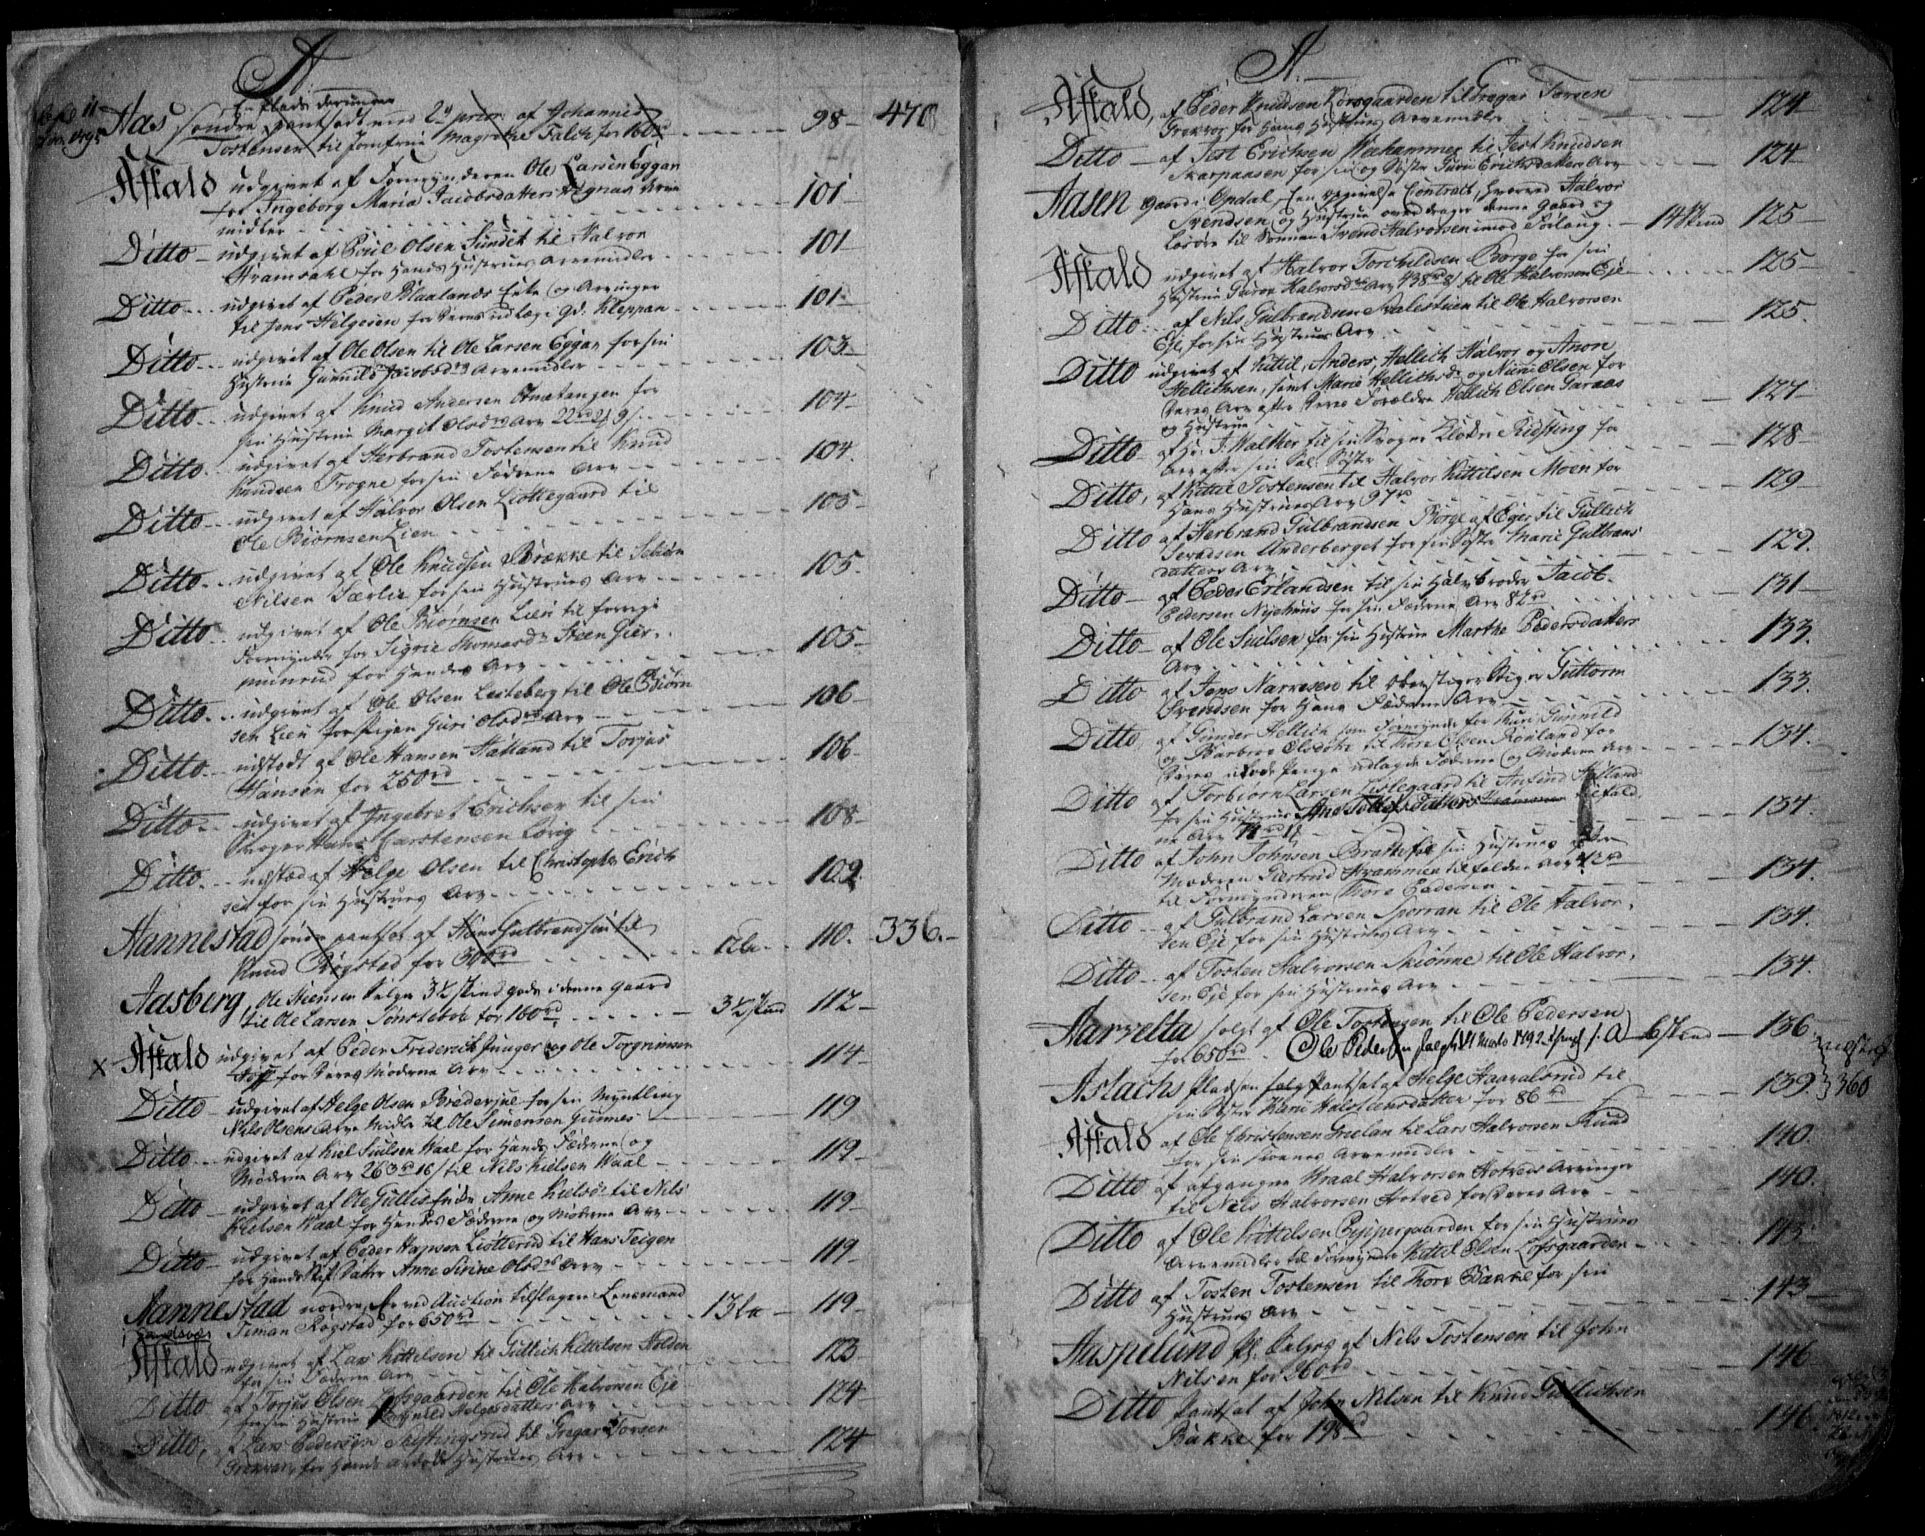 A.
Aas søndre pantsadt med 2den prior. af Johannes
Tostensen til Jomfrue Magrethe Falch for 98 - 470
Afkald udgivet af Formynderen Ole Larsen Eggan
for Ingeborg Maria Jacobsdatters
midler 101
Ditto udgivet af Poul Olsen Sundet til Halvor
Hramsdahl for Hands Hustrues Arvemidler 101
Ditto udgivet af Peder Blaalands Enke og Arvinger
til Jens Helgesen for deres udlæg i Gd. Kleppan 101
Ditto udgivet af Ole Olsen til Ole Larsen Eggan for sin
Hustrue Gunnild Jacobsdr Arvemidler 103
Ditto udgivet af Knud Andersen for
sin Hustrue Margit Olsdrs Arv 22rd 104
Ditto udgivet af Herbrand Tostensen til Knud
Knudsen Frogne for sin Fæderne Arv 104
Ditto udgivet af Halvor Olsen Liøttegaard til
Ole Biørnsen Lien 105
Ditto udgivet af Ole Knudsen Brække til
Nilsen Særlie for sin Hustrues Arv 105
Ditto udgivet af Ole Biørnsen Lien til forrige
Formynder for Sigrie Thomasdr Steen
for Hendes Arv 105
Ditto udgivet af Ole Olsen Lesteberg til Ole Biørn
sen Lien for Pigen Guri Olsdrs Arv 106
Ditto udstedt af Ole Hansen Hatland til Torjus
Hansen for 250rd 106
Ditto udgivet af Ingebret Erichsen til sin
Svoger Hans Carstensen Lørig 108
Ditto udsted af Helge Olsen til Christopher Erich
sen for sin Hustrues Arv 109
Aannestad søndre pantsat af Hans Gulbrandsen til
Knud Røgstad for 500rd 110. 336.
Aasberg, Ole Steensen Sælger 3½ skind gods i denne Gaard
til Ole Larsen Tønsteboe for 160rd 3½ skind 112
x Afkald udgivet af Peder Friderich Junger og Ole Torgrimsen
for deres Møderne Arv 114
Ditto udgivet af Helge Olsen Brederjue for sin Myndtling
Nils Olsens Arve Midler til Ole Simensen Gunnes 119
Ditto udgivet af Kiel Juelsen Waal for Hands Fæderne og
Møderne Arv 263rd 16s til Nils Kielsen Waal 119
Ditto udgivet af Ole Gullichs Enke Anne Kielsdr til Nils
Kielsen Waal for Hendes Fæderne og Møderne Arv 119
Ditto udgivet af Peder Hansen Liøtterud til Hans Teigen
for Hands Stif Datter Anne Sirine Olsdrs Arv 119
Aannestad nordre, Er ved Auction tilslagen Lensmand
Timan Røgstad for 650rd 119
i Sandsvær
Afkald udgivet af Lars Kittelsen til Gullich Kittelsen Holden
for sin Fæderne Arv 123
Ditto af Torjus Olsen Lofsgaarden til Ole Halvorsen Eje
for sin Hustrue Helgesdatters Arv 124
Ditto, af Lars Pedersen til Gregar Torsen
for Hands Hustrues Arv 124
A.
Afkald, af Peder Knudsen Korsgaarden til Gregar Torsen
for Hans Hustrues Arvemidler 124
Ditto af Jest Erichsen Weehammer til Jest Knudsen
Skarpaasen for sin og Søster Guri Erichsdatters Arv 124
Aasen Gaard i Opdal En Opgivelse Contract, hvorved Halvor
Svendsen og Hustrue overdrager denne Gaard og
Løsøre til Sønnen Svend Halvorsen imod Føilaug. 14 skind 125
Afkald udgivet af Halvor Torchildsen Borge for sin
Hustrue Guroe Halvorsdrs Arv 438rd 8s til Ole Halvorsen Eje 125
Ditto af Nils Gulbrandsen til Ole Halvorsen
Eje for sin Hustrues Arv 125.
Ditto udgivet af Kittil, Anders, Hellich, Halvor og Anon
Hellichsen, samt Marie Hellichsdr og Nirie Olsen for
deres Arv efter deres Forældre Hellich Olsen Garaas
og Hustrue 127
Ditto af Hr. J. Walther til sin Svoger Klokker Ridsting for
Arv efter sin Sal. Søster 128
Ditto, af Kittil Tostensen til Halvor Kittilsen Moen for
Hans Hustrues Arv 97rd 129
Ditto af Herbrand Gulbrandsen Borge af Eger til Gullich
Svendsen Underberget for sin Søster Marie Gulbrans
datters Arv 129.
Ditto af Peder Erlandsen til sin Halvbroder Jacob
Pedersen Nyehuus for sin Fæderne Arv 82rd 131
Ditto af Ole Juelsen for sin Hustrue Marthe Pedersdatters
Arv 133.
Ditto af Jens Narvesen til Oberstiger Stiger Guttorm
Svendsen for Hans Fæderne Arv 133.
Ditto, af Gunder Hellich som Formynder for Kari Gunnild
og Barbroe Olsdøtr til Thore Olsen Rionland for
deres udlagde Fæderne og Møderne Arv 134.
Ditto af Torbiørn Larsen Liøtegaard til Halland
for sin Hustrues Ane Tollefs Datters tilfald
ne Arv 134.
Ditto af John Johnsen Brattefos sin Hustrues efter
Moderen Giertrud Krammen tilfaldne Arv
til Formynderen Thore Pedersen 134.
Ditto af Gulbrand Larsen Sporran til Ole Halvor
sen Eje for sin Hustrues Arv 134.
Ditto af Tosten Halvorsen Skiønne til Ole Halvor
sen Eje for sin Hustrues Arv 134.
Aarvelta solgt af Ole Tostensen til Ole Pedersen
for 650rd. Ole Pedersen 6 skind 136
Aslachs Pladsen Pantsat af Helge Haavalsrud til
sin Søster Kari Halstensdatter for 86rd 139. 360
Afkald af Ole Christensen Grielan til Lars Halvorsen Ruud
for sin Arvemidler 140.
Ditto af afgangne Wraal Halvorsen Hotveds Arvinger
til Nels Halvorsen Hotved for deres Arv 140.
Ditto af Ole Kittelsen Pippergaarden for sin Hustrues
Arvemidler til Formynder Kittil Olsen Lofsgaarden 143
Ditto af Tosten Tostensen til Thore Bakke for sin
Hustrues Arv 143
Aaspelund Pl. Sælges af Nils Tostensen til John
Nilsen for 260rd 146
Ditto Pantsat af John Nilsen til Knud Gullichsen
Bakke for 198rd 146